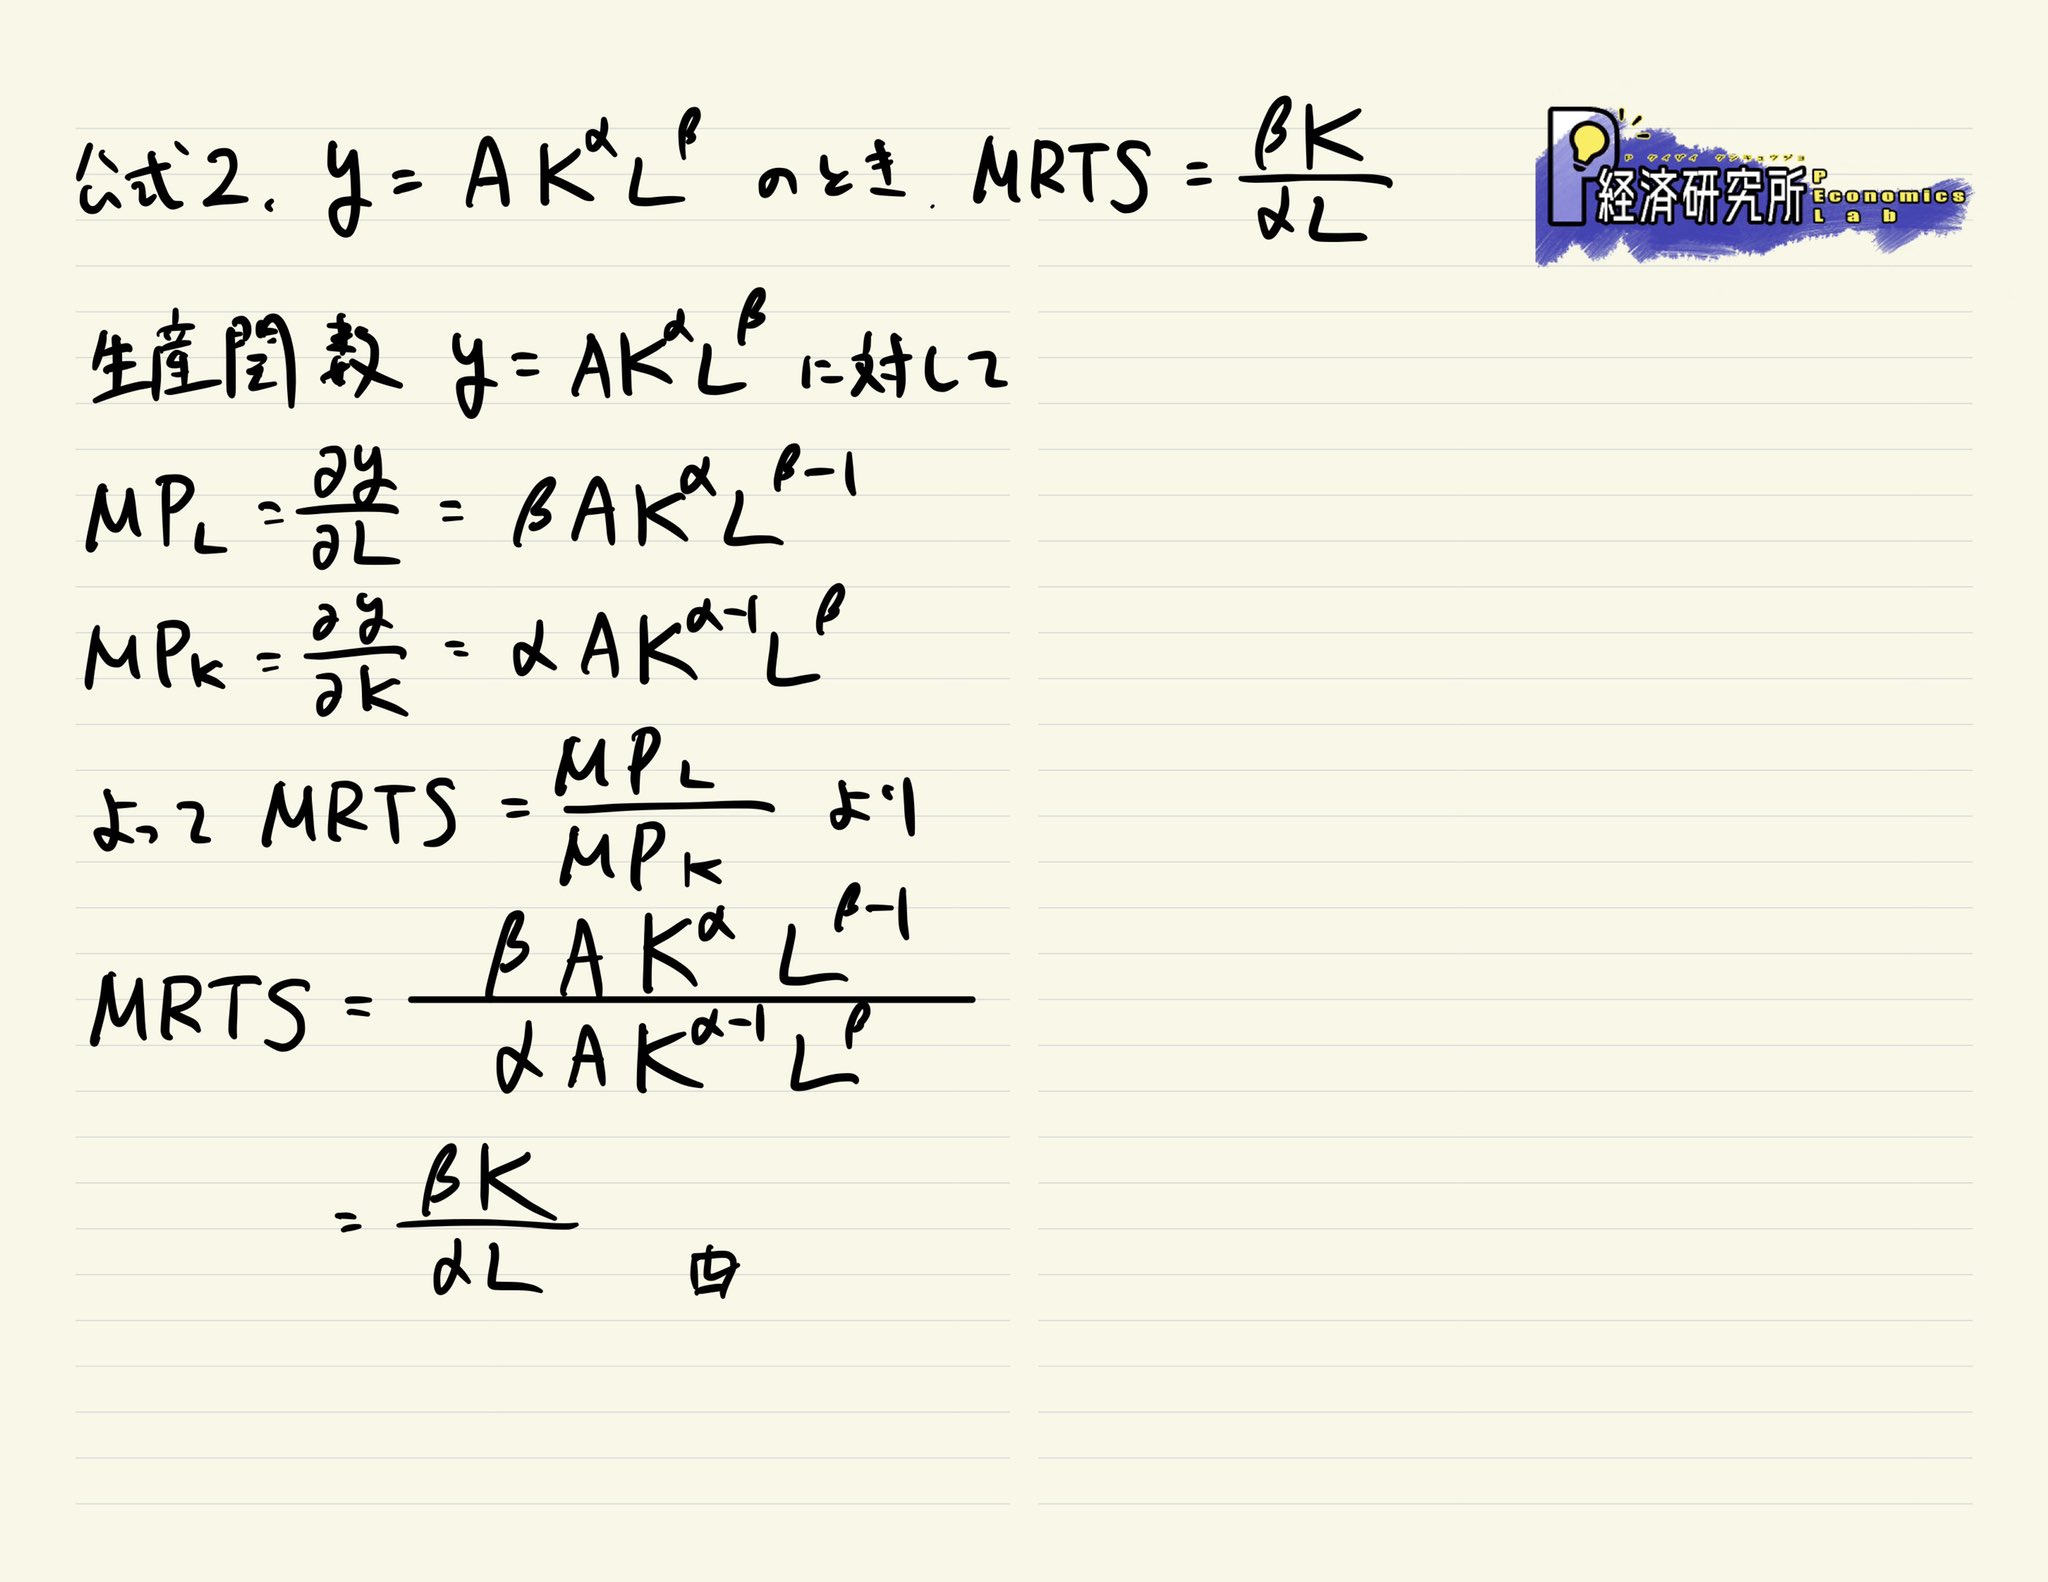 公式2. y = AK^α L^β のとき. MRTS = βK/αL
P ケイザイ ケンキュウジョ
P経済研究所
P
Economics
Lab
生産関数 y = AK^α L^β に対して
MP_L = ∂y/∂L = βAK^α L^(β-1)
MP_K = ∂y/∂K = αAK^(α-1) L^β
よって MRTS = MP_L/MP_K より
MRTS = βAK^α L^(β-1) / αAK^(α-1) L^β
= βK/αL